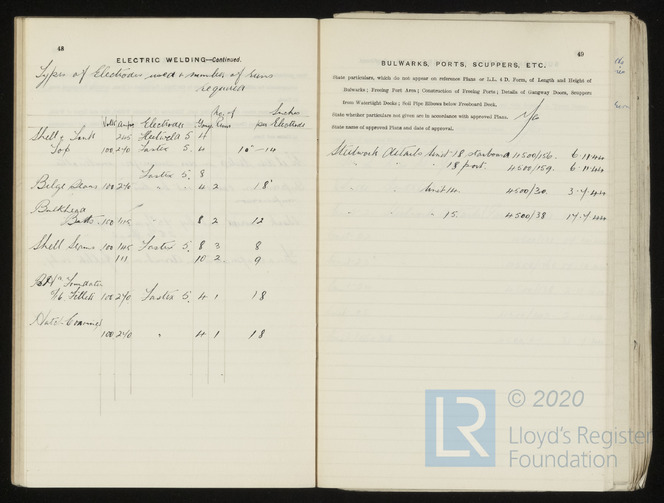 48
ELECTRIC WELDING—Continued.
Types of Electrodes used & number of runs
required
Volts Amps Electrodes Gauge Runs per Electrode
Shell & Tank
Top 100 270 Fastex 5 4 10"–14
Fastex 5. 8
Bilge 100 270 4 2 18"
Bulkhead
Butts 8 2 12
Shell Seams 100 Fastex 5. 8 3 8
10 2 9
Fillets 100 270 Fastex 5. 4 1 18
Coamings
100 270 " 4 1 18
49
BULWARKS, PORTS, SCUPPERS, ETC.
State particulars, which do not appear on reference Plans or L.L. 4 D. Form, of Length and Height of
Bulwarks; Freeing Port Area; Construction of Freeing Ports; Details of Gangway Doors, Scuppers
from Watertight Decks; Soil Pipe Elbows below Freeboard Deck.
State whether particulars not given are in accordance with approved Plans.
State name of approved Plans and date of approval.
Steelwork details Unit 18 starboard 4500/156. 6.11.44
" " " 18 port. 4500/159. 6.11.44
Unit 14. 4500/30. 3.7.44
" 15. 4500/38 17.7.44
© 2020
LR
Lloyd's Register
Foundation